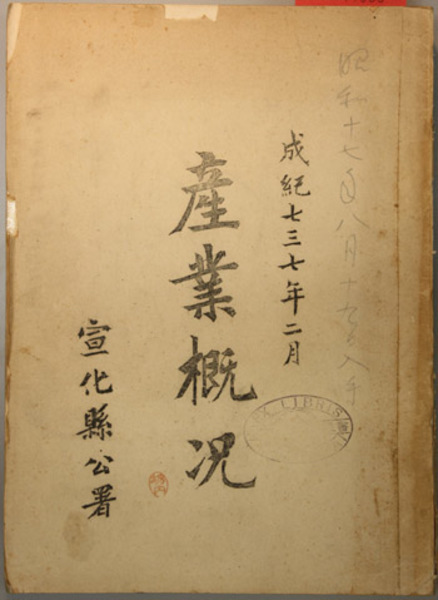 昭和十七年八月十九日入手
成紀七三七年二月
產業概況
宣化縣公署
EX LIBRIS